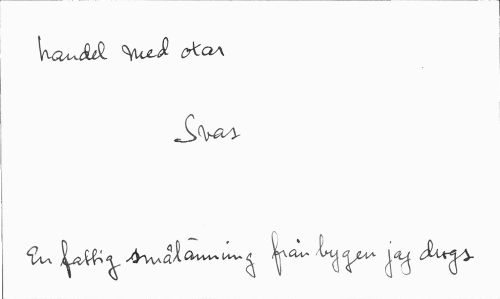 handel med oxar
Svar
En fattig smålänning från bygen jag drogs